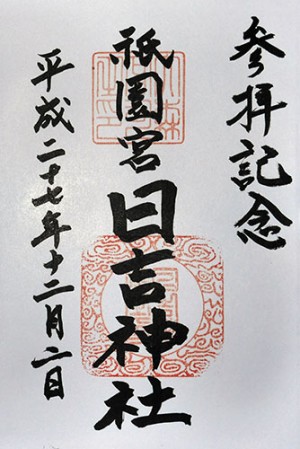 参拝記念
祇園宮日吉神社
平成二十七年十二月六日